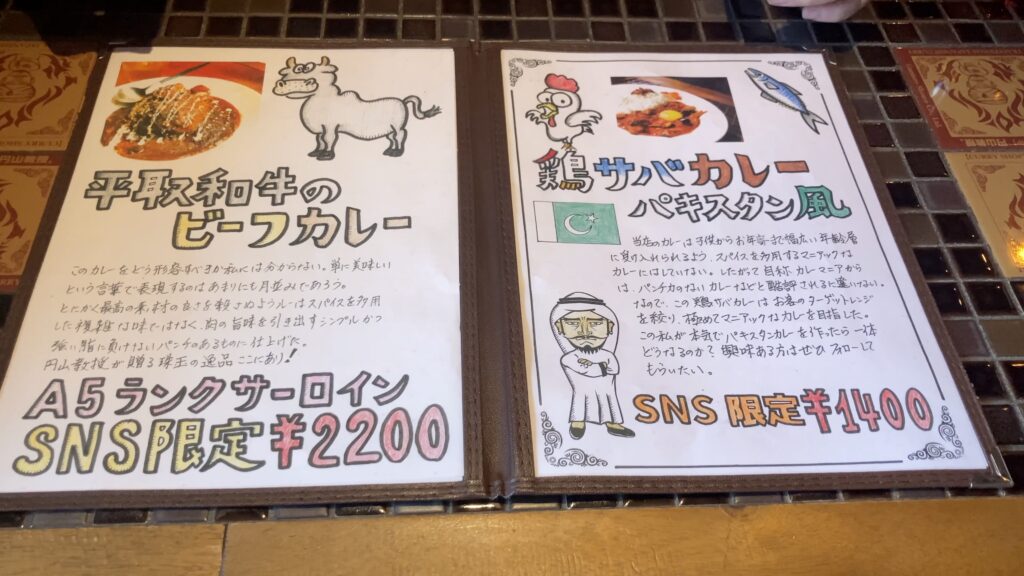 平取和牛の
ビーフカレー
このカレーをどう形容すべきか私には分からない。単に美味しい
という言葉で表現するのはあまりにも月並みであろう。
とにかく最高の素材の良さを殺さぬようルーはスパイスを多用
した複雑な味ではなく、肉の旨味を引き出すシンプルかつ
強い脂に負けないパンチのあるものに仕上げた。
円山教授が贈る珠玉の逸品ここにあり!
A5ランクサーロイン
SNS限定¥2200
鶏サバカレー
パキスタン風
当店のカレーは子供からお年寄まで幅広い年齢層
に受け入れられるよう、スパイスを多用するマニアックな
カレーにはしていない。したがって自称カレーマニアから
は、パンチ力のないカレーなどと酷評されるに違いない。
なので、この鶏サバカレーはお客のターゲットレンジ
を絞り、極めてマニアックなカレーを目指した。
この私が本気でパキスタンカレーを作ったら一体
どうなるのか?興味ある方はぜひフォローして
もらいたい。
SNS限定¥1400